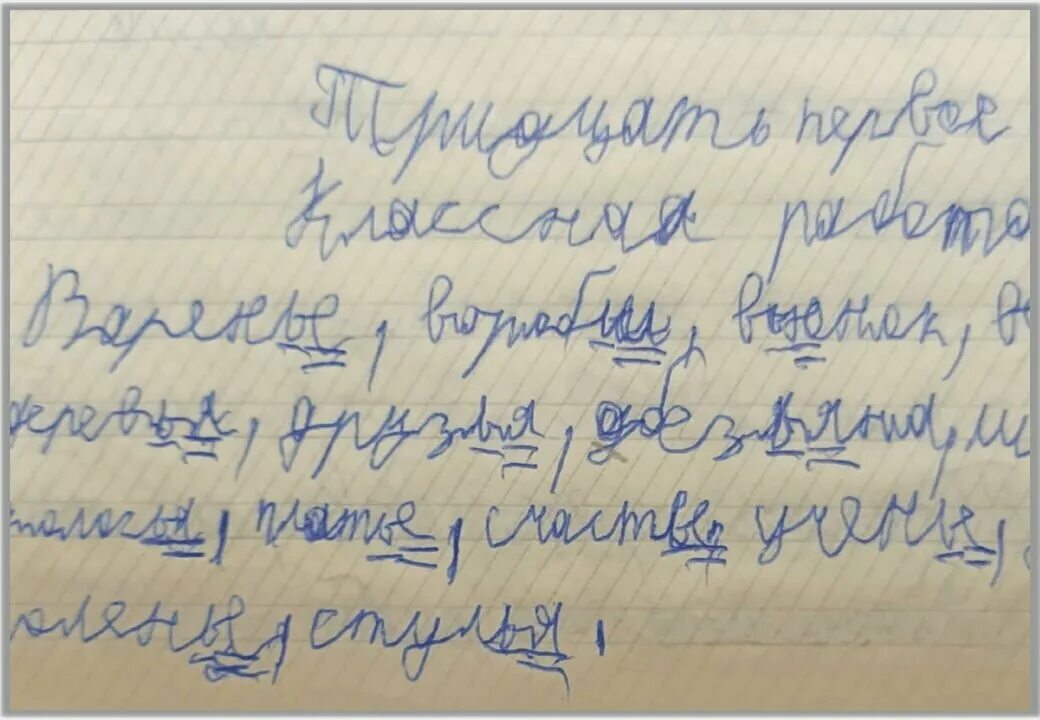 Тридцать первое
Классная работа
Варенье, воробьи, вьюнок,
деревья, друзья, обезьяна,
платье, счастье, ученье,
оленьи, стулья,